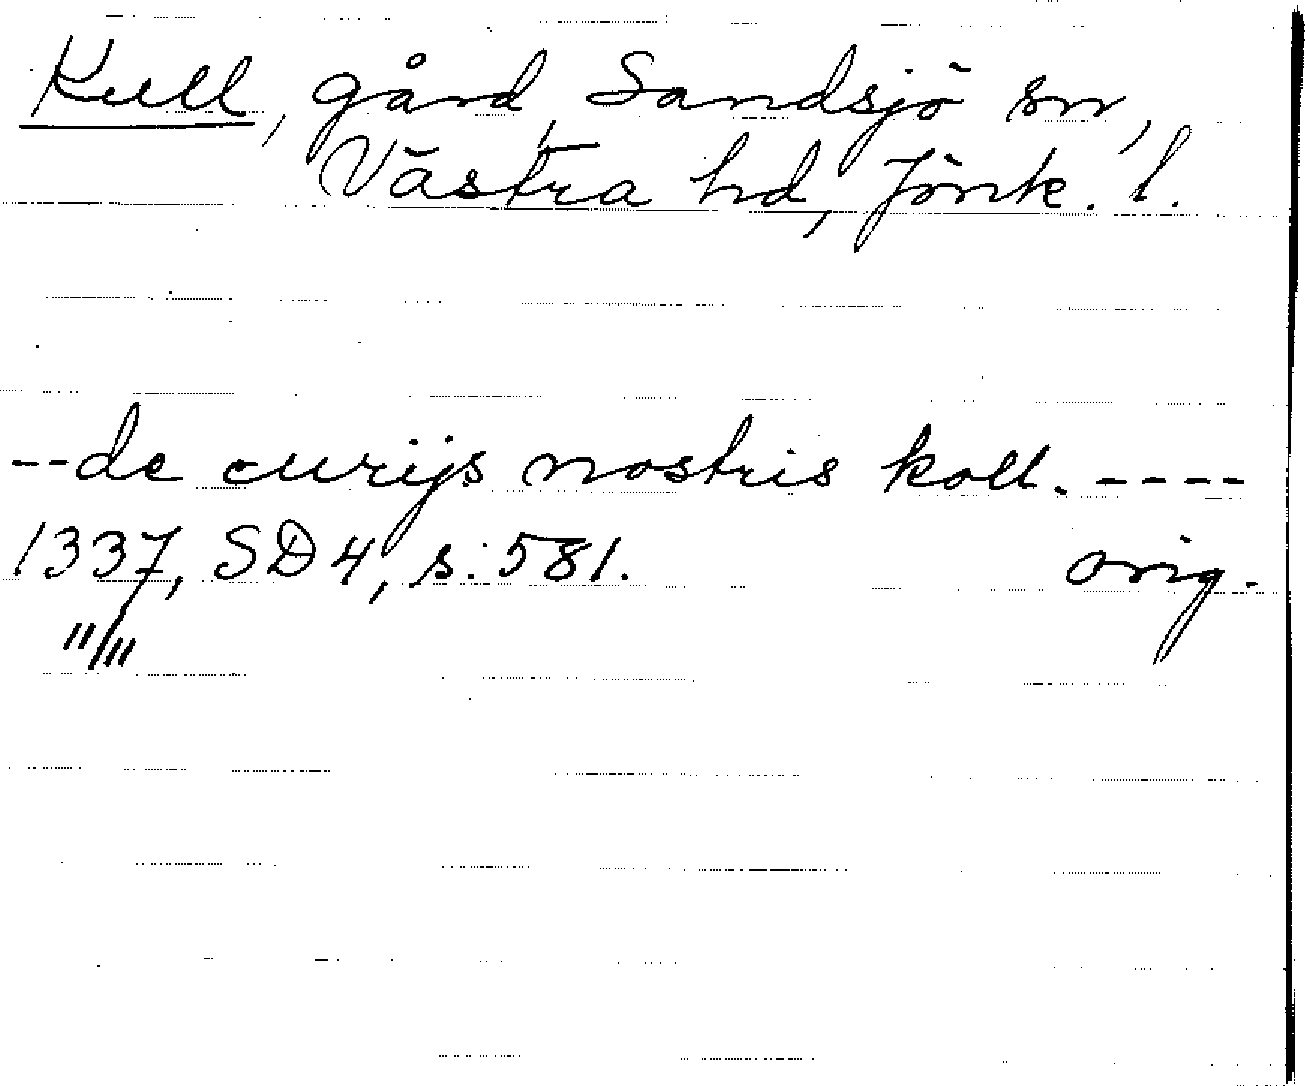 Kull, gård, Sandsjö sn,
Västra hd, Jönk. l.
--de curijs nostris koll. ----
1337, SD 4, s. 581. orig.
11/11